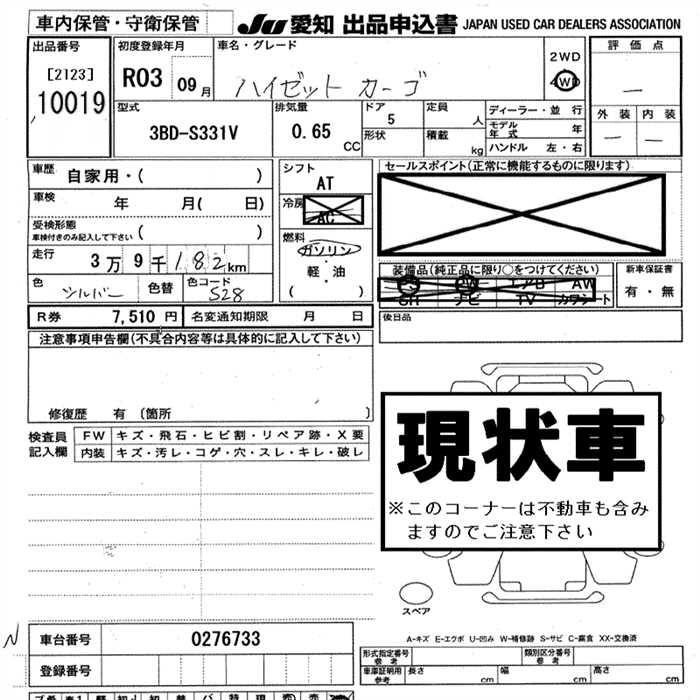 車内保管・守衛保管
JU 愛知 出品申込書 JAPAN USED CAR DEALERS ASSOCIATION
出品番号
[2123]
10019
初度登録年月
R03 09月
車名・グレード
ハイゼットカーゴ
2WD
4WD
評価点
―
外装 内装
― ―
型式
3BD-S331V
排気量
0.65 CC
ドア
5
形状
定員
人
積載
kg
ディーラー・並行
モデル年式 年
ハンドル 左・右
車歴 自家用・( )
車検 年 月( 日)
受検形態
車検付きのみ記入して下さい ( )
走行 3万9千182km
色 シルバー 色替 色コード S28
シフト
AT
冷房
AC
燃料
ガソリン
軽・油
( )
セールスポイント(正常に機能するものに限ります)
装備品(純正品に限り○をつけてください)
SR ナビ TV カワシート
エアB AW
新車保証書
有・無
R券 7,510円 名変通知期限 月 日
後日品
注意事項申告欄(不具合内容等は具体的に記入して下さい)
修復歴 有 〔箇所 〕
検査員記入欄
FW キズ・飛石・ヒビ割・リペア跡・X要
内装 キズ・汚レ・コゲ・穴・スレ・キレ・破レ
現状車
※このコーナーは不動車も含み
ますのでご注意下さい
スペア
A-キズ E-エクボ U-凹み W-補修跡 S-サビ C-腐食 XX-交換済
車台番号 0276733
登録番号
形式指定番号 参考
類別区分番号 参考
車庫証明用 参考 長さ cm 幅 cm 高さ cm